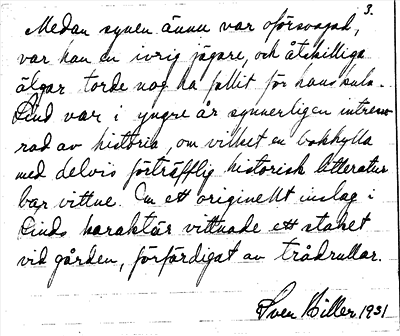 3.
Medan synen ännu var oförsvagad,
var han en ivrig jägare, och åtskilliga
älgar torde nog ha fallit för hans kula.
Lind var i yngre år synnerligen intresse-
rad av historia, om vilket en bokhylla
med delvis förträfflig historisk litteratur
bar vittne. Om ett originellt inslag i
Linds karaktär vittnade ett staket
vid gården, förfärdigat av trådrullar.
Sven Hiller 1931